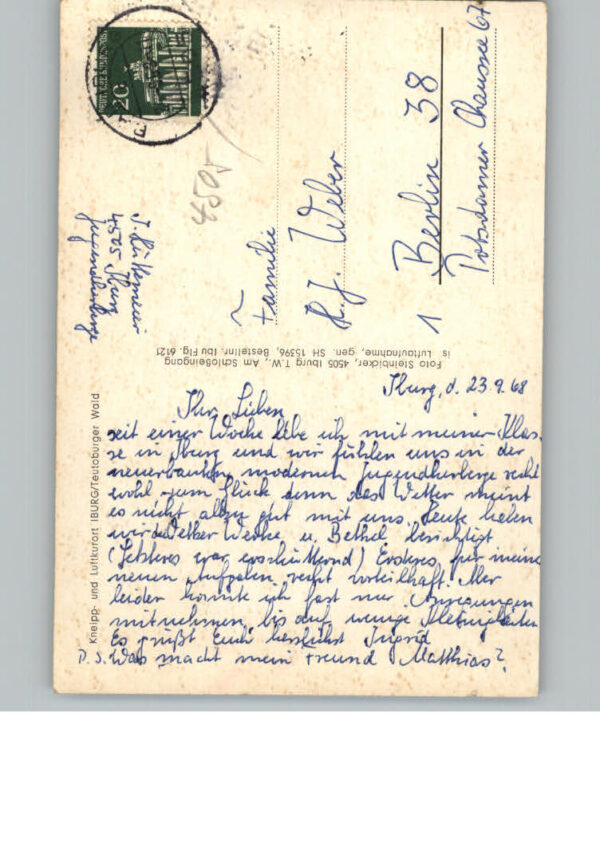 Iburg, d. 23.9.68
Ihr Lieben
seit einer Woche lebe ich mit meiner Klas-
se in Iburg und wir fühlen uns in der
neuerbauten modernen Jugendherberge recht
wohl zum Glück denn das Wetter meint
es nicht allzu gut mit uns. Heute haben
wir Werke u. Bethel besichtigt
(Letzteres war erschütternd) Ersteres für meine
neuen Aufgaben recht vorteilhaft. Aber
leider konnte ich fast nur Anregungen
mitnehmen bis auf wenige Kleinigkeiten
Es grüßt Euch herzlichst Ingrid
P.S. Was macht mein Freund Matthias?
Familie
H.J. Weber
1 Berlin 38
Potsdamer Chaussee 67
4505 Iburg
Jugendherberge
4505
DEUTSCHE BUNDESPOST
20
Kneipp- und Luftkurort IBURG/Teutoburger Wald
Foto Steinbicker, 4505 Iburg T.W., Am Schloßeingang
is Luftaufnahme, gen. SH 15396, Bestellnr. Ibu Flg. 6121